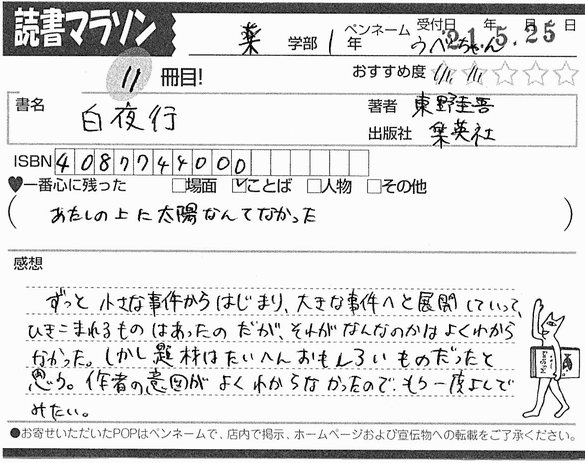 読書マラソン
薬 学部 1 年 ペンネーム うべちゃん 受付日 年 月 日 21.5.25
11 冊目! おすすめ度
書名 白夜行 著者 東野圭吾
出版社 集英社
ISBN 4087744000
♥一番心に残った □場面 ☑ことば □人物 □その他
(あたしの上に太陽なんてなかった)
感想
ずっと小さな事件からはじまり、大きな事件へと展開していって、
ひきこまれるものはあったのだが、それがなんなのかはよくわから
なかった。しかし題材はたいへんおもしろいものだったと
思う。作者の意図がよくわからなかったので、もう一度よんで
みたい。
●お寄せいただいたPOPはペンネームで、店内で掲示、ホームページおよび宣伝物への転載をご了承ください。